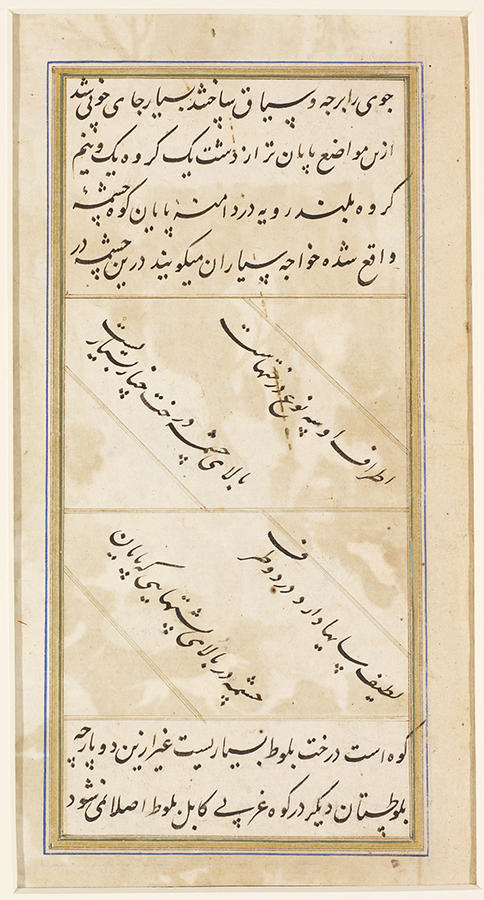 جوی را برجه و سیاق ساختند بسیار جای خوبی شد
ازین مواضع پایان تر از دشت یک کروه یک و نیم
کروه بلند رویه در دامنهٔ پایان کوه چشمهٔ
واقع شده خواجه سیاران میکویند درین چشمه در
اطراف او سه نوع درختهاست
بالای چشمه درخت چنار بسیاریست
لطیف سایها دارد در دو طرف
چشمه در بالای پشتهایی که پایان
کوه است درخت بلوط بسیاریست غیر ازین دو پارچه
بلوطستان دیکر در کوه غربی کابل بلوط اصلا نمی‌شود